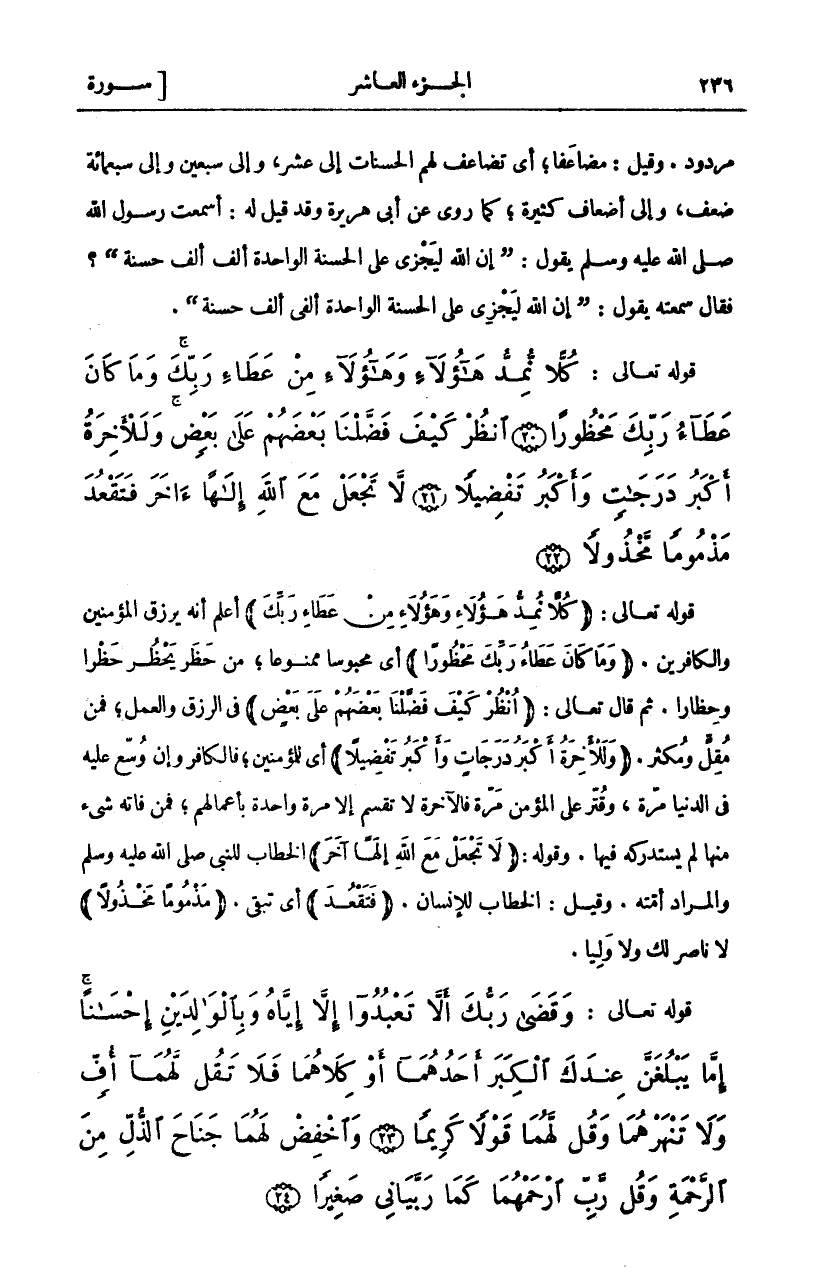 ٢٣٦ الجزء العاشر [ سورة
مردود . وقيل : مضاعَفا؛ أى تضاعف لهم الحسنات إلى عشر، وإلى سبعين وإلى سبعمائة
ضعف، وإلى أضعاف كثيرة ؛ كما روى عن أبى هريرة وقد قيل له : أسمعت رسول الله
صلى الله عليه وسلم يقول : ” إن الله ليَجْزى على الحسنة الواحدة ألف ألف حسنة “ ؟
فقال سمعته يقول : ” إن الله ليَجْزِى على الحسنة الواحدة ألفى ألف حسنة “ .
قوله تعالى : كُلًّا نُّمِدُّ هَٰٓؤُلَآءِ وَهَٰٓؤُلَآءِ مِنْ عَطَآءِ رَبِّكَۚ وَمَا كَانَ
عَطَآءُ رَبِّكَ مَحْظُورًا ﴿٢٠﴾ ٱنظُرْ كَيْفَ فَضَّلْنَا بَعْضَهُمْ عَلَىٰ بَعْضٍۚ وَلَلْأَخِرَةُ
أَكْبَرُ دَرَجَٰتٍ وَأَكْبَرُ تَفْضِيلًا ﴿٢١﴾ لَّا تَجْعَلْ مَعَ ٱللَّهِ إِلَٰهًا ءَاخَرَ فَتَقْعُدَ
مَذْمُومًا مَّخْذُولًا ﴿٢٢﴾
قوله تعالى: ﴿كُلًّا نُمِدُّ هَؤُلَاءِ وَهَؤُلَاءِ مِنْ عَطَاءِ رَبِّكَ﴾ أعلم أنه يرزق المؤمنين
والكافرين . ﴿وَمَا كَانَ عَطَاءُ رَبِّكَ مَحْظُورًا﴾ أى محبوسا ممنوعا ؛ من حَظَر يَحْظُر حَظْرا
وحِظارا . ثم قال تعالى : ﴿اُنْظُرْ كَيْفَ فَضَّلْنَا بَعْضَهُمْ عَلَى بَعْضٍ﴾ فى الرزق والعمل؛ فمن
مُقِلٍّ ومُكثر . ﴿وَلَلْآخِرَةُ أَكْبَرُ دَرَجَاتٍ وَأَكْبَرُ تَفْضِيلًا﴾ أى للمؤمنين؛ فالكافر وإن وُسّع عليه
فى الدنيا مرّة ، وقُتّر على المؤمن مَرّة فالآخرة لا تقسم إلا مرة واحدة بأعمالهم ؛ فمن فاته شىء
منها لم يستدركه فيها . وقوله : ﴿لَا تَجْعَلْ مَعَ اللَّهِ إِلَهًا آخَرَ﴾ الخطاب للنبى صلى الله عليه وسلم
والمراد أمّته . وقيل : الخطاب للإنسان . ﴿فَتَقْعُدَ﴾ أى تبقى . ﴿مَذْمُومًا مَخْذُولًا﴾
لا ناصر لك ولا وَلِيا .
قوله تعالى : وَقَضَىٰ رَبُّكَ أَلَّا تَعْبُدُوٓا إِلَّآ إِيَّاهُ وَبِٱلْوَٰلِدَيْنِ إِحْسَٰنًاۚ
إِمَّا يَبْلُغَنَّ عِندَكَ ٱلْكِبَرَ أَحَدُهُمَآ أَوْ كِلَاهُمَا فَلَا تَقُل لَّهُمَآ أُفٍّ
وَلَا تَنْهَرْهُمَا وَقُل لَّهُمَا قَوْلًا كَرِيمًا ﴿٢٣﴾ وَٱخْفِضْ لَهُمَا جَنَاحَ ٱلذُّلِّ مِنَ
ٱلرَّحْمَةِ وَقُل رَّبِّ ٱرْحَمْهُمَا كَمَا رَبَّيَانِى صَغِيرًا ﴿٢٤﴾